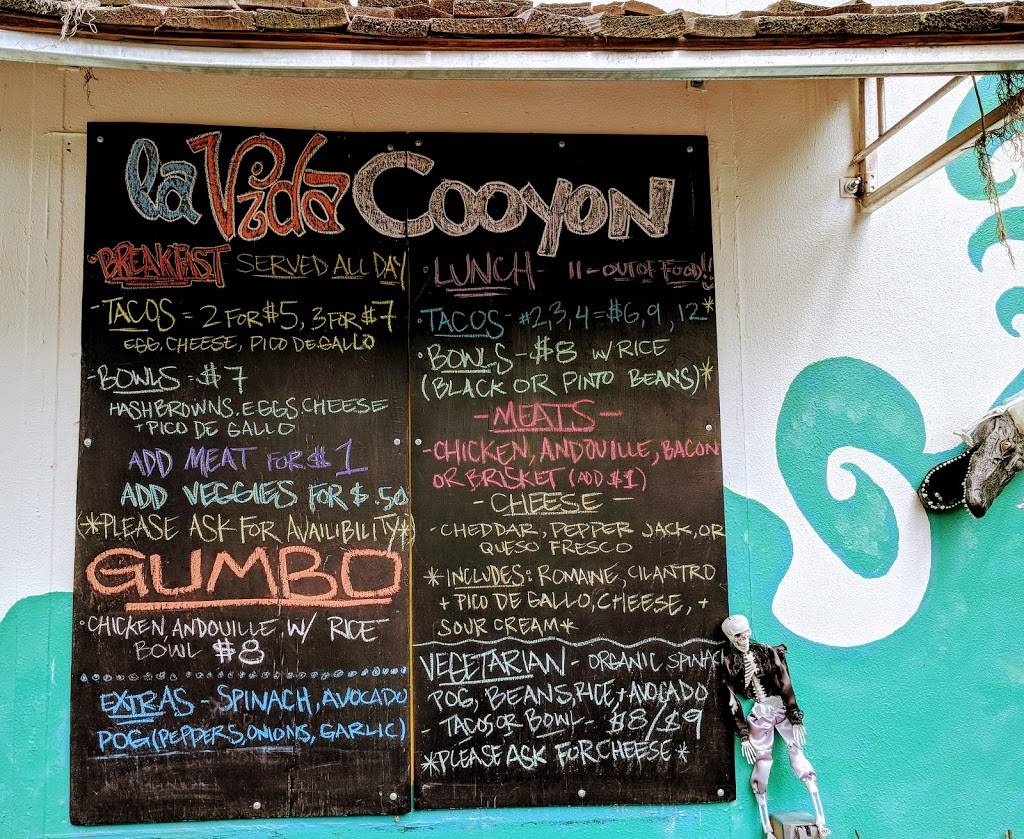 La Vida Cooyon
·BREAKFAST SERVED ALL DAY
-TACOS = 2 FOR $5, 3 FOR $7
EGG, CHEESE, PICO DE GALLO
-BOWLS = $7
HASHBROWNS, EGGS, CHEESE
+ PICO DE GALLO
ADD MEAT FOR $1
ADD VEGGIES FOR $.50
(*PLEASE ASK FOR AVAILIBILITY*)
GUMBO
·CHICKEN, ANDOUILLE, W/ RICE
BOWL $8
EXTRAS - SPINACH, AVOCADO
POG (PEPPERS, ONIONS, GARLIC)
·LUNCH- 11-OUT OF FOOD!!
·TACOS- #2,3,4 = $6,9,12*
·BOWLS - $8 W/RICE
(BLACK OR PINTO BEANS)*
-MEATS-
-CHICKEN, ANDOUILLE, BACON
OR BRISKET (ADD $1)
-CHEESE-
-CHEDDAR, PEPPER JACK, OR
QUESO FRESCO
*INCLUDES: ROMAINE, CILANTRO
+ PICO DE GALLO, CHEESE, +
SOUR CREAM*
VEGETARIAN - ORGANIC SPINACH
POG, BEANS, RICE, + AVOCADO
- TACOS OR BOWL - $8/$9
*PLEASE ASK FOR CHEESE*